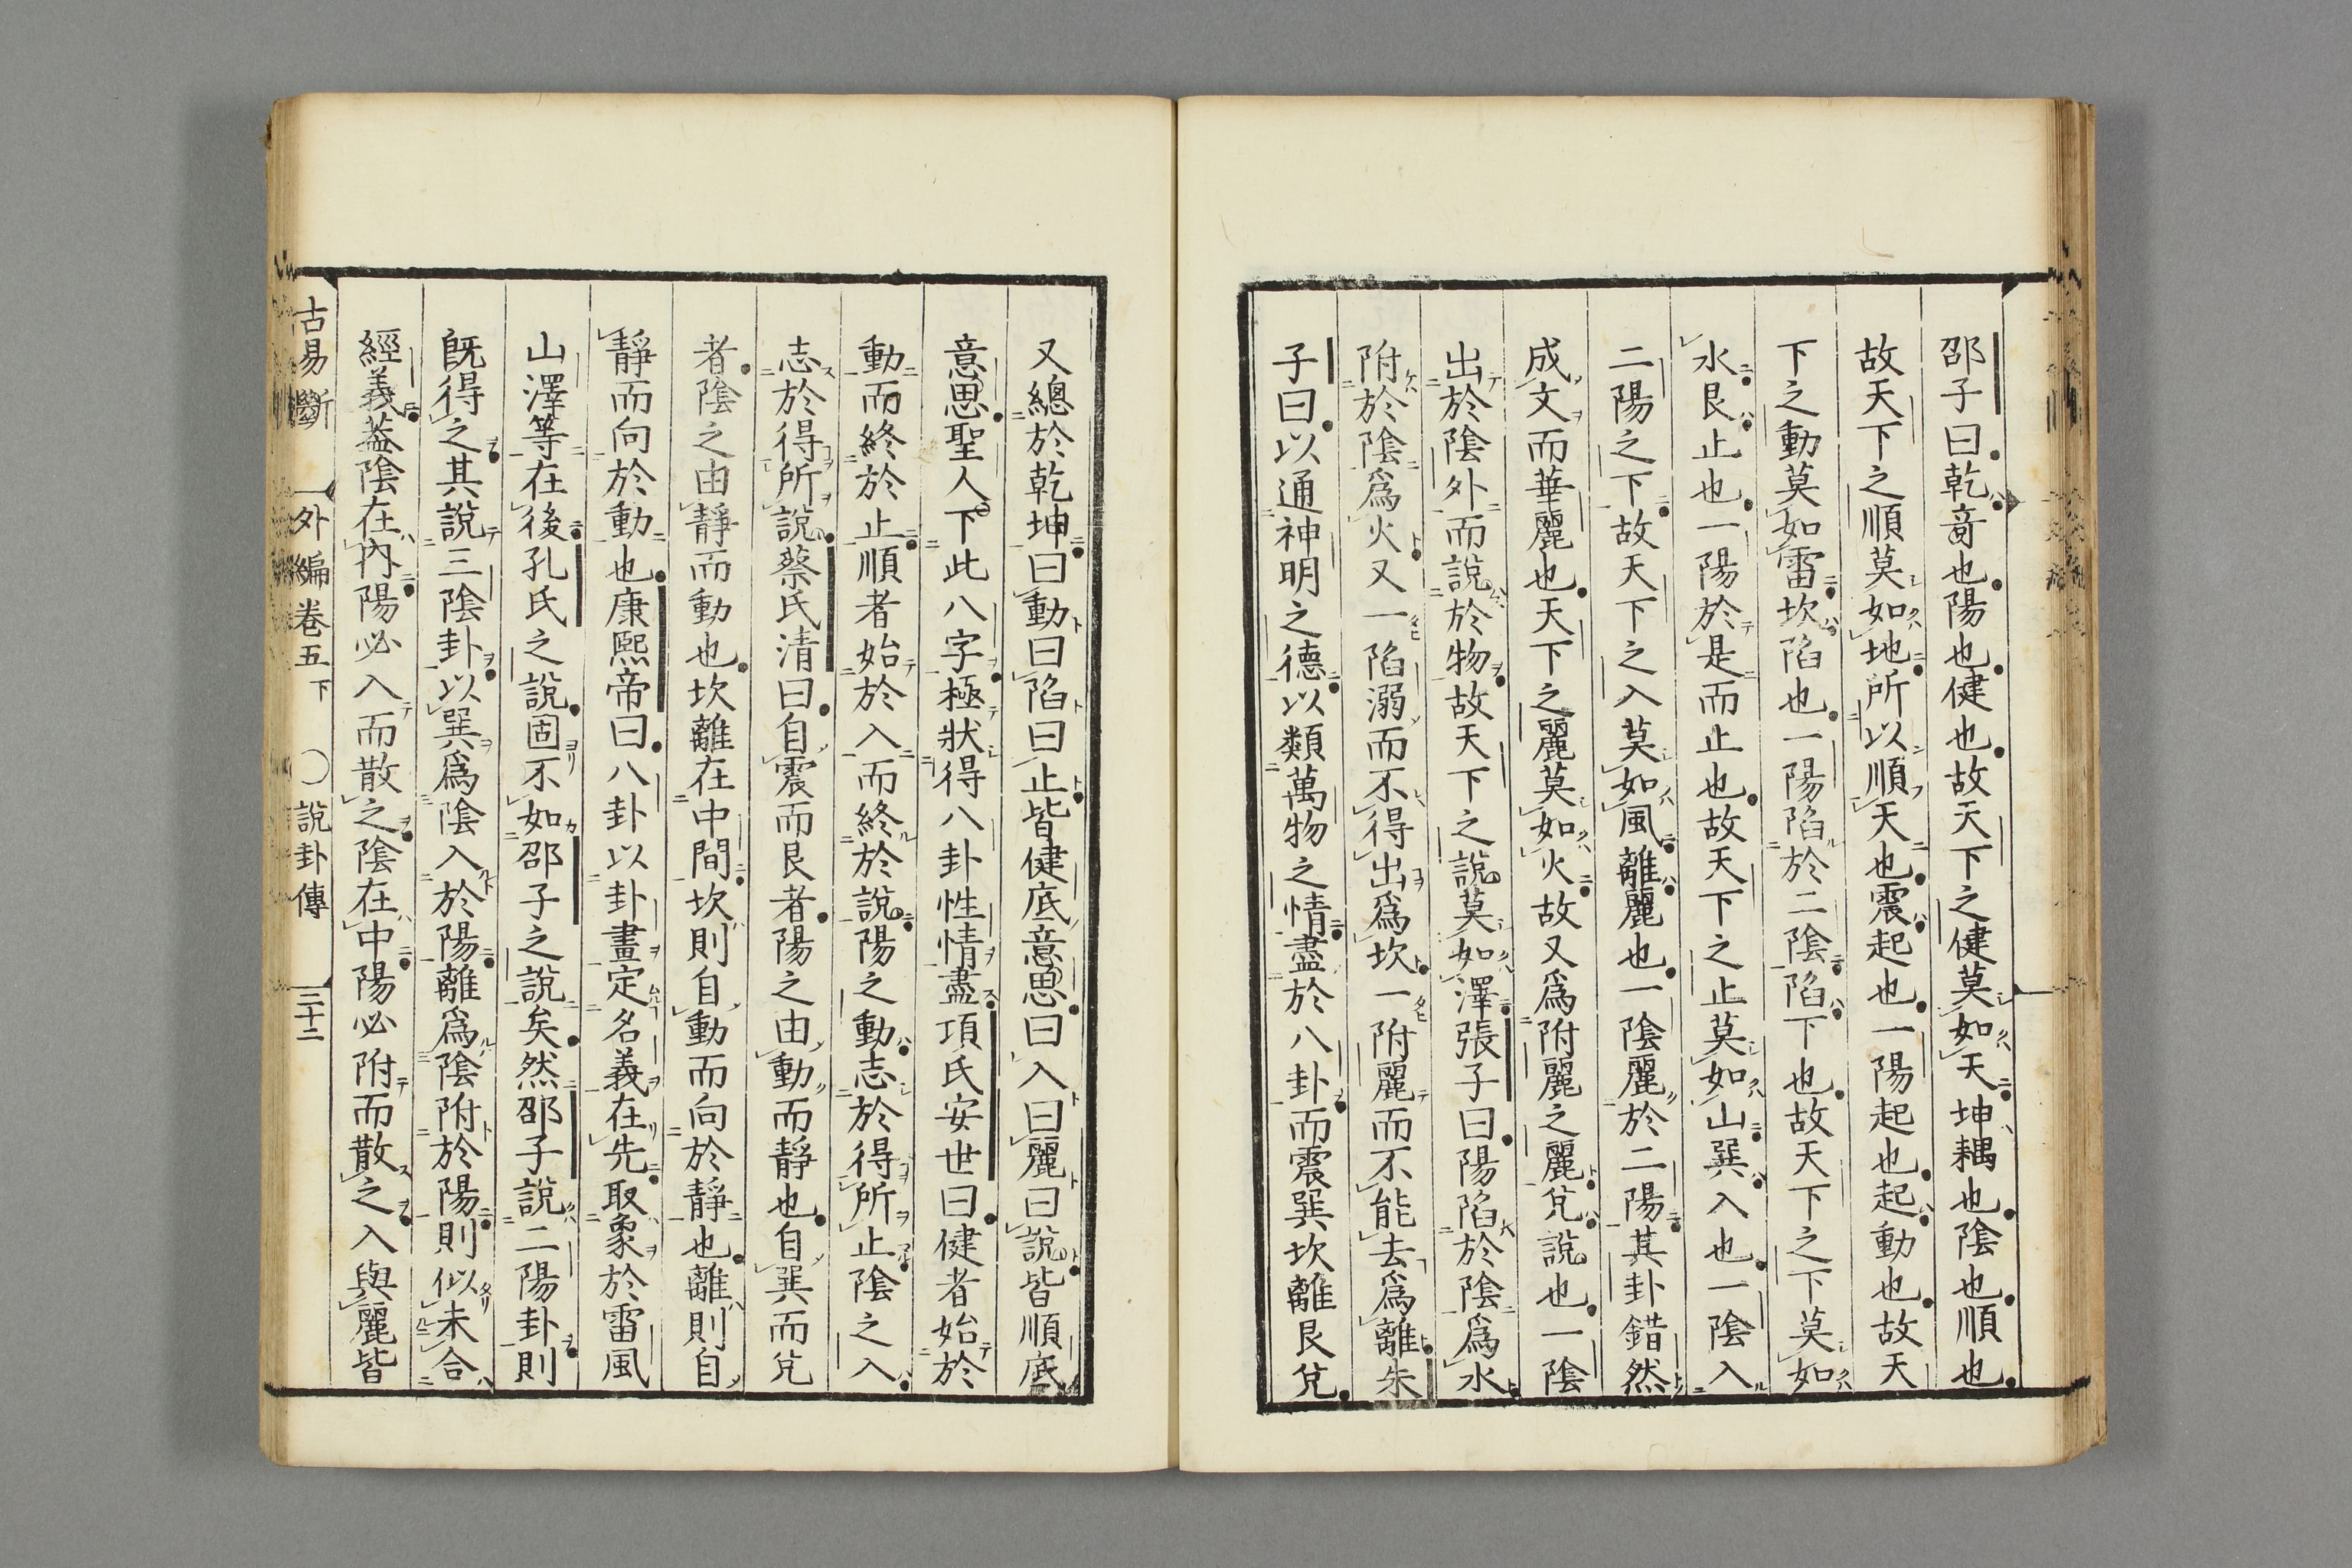 邵子曰乾竒也陽也健也故天下之健莫如天坤耦也陰也順也
故天下之順莫如地所以順天也震起也一陽起也起動也故天
下之動莫如雷坎陷也一陽陷於二陰陷下也故天下之下莫如
水艮止也一陽於是而止也故天下之止莫如山巽入也一陰入
二陽之下故天下之入莫如風離麗也一陰麗於二陽其卦錯然
成文而華麗也天下之麗莫如火故又爲附麗之麗兌說也一陰
出於陰外而說於物故天下之說莫如澤張子曰陽陷於陰爲水
附於陰爲火又一陷溺而不得出爲坎一附麗而不能去爲離朱
子曰以通神明之德以類萬物之情盡於八卦而震巽坎離艮兌
又總於乾坤曰動曰陷曰止皆健底意思曰入曰麗曰說皆順底
意思聖人下此八字極狀得八卦性情盡項氏安世曰健者始於
動而終於止順者始於入而終於說陽之動志於得所止陰之入
志於得所說蔡氏清曰自震而艮者陽之由動而靜也自巽而兌
者陰之由靜而動也坎離在中間坎則自動而向於靜也離則自
靜而向於動也康熙帝曰八卦以卦畫定名義在先取象於雷風
山澤等在後孔氏之說固不如邵子之說矣然邵子說二陽卦則
既得之其說三陰卦以巽爲陰入於陽離爲陰附於陽則似未合
經義葢陰在內陽必入而散之陰在中陽必附而散之入與麗皆
古易斷　外編卷五下　〇說卦傳　三十二